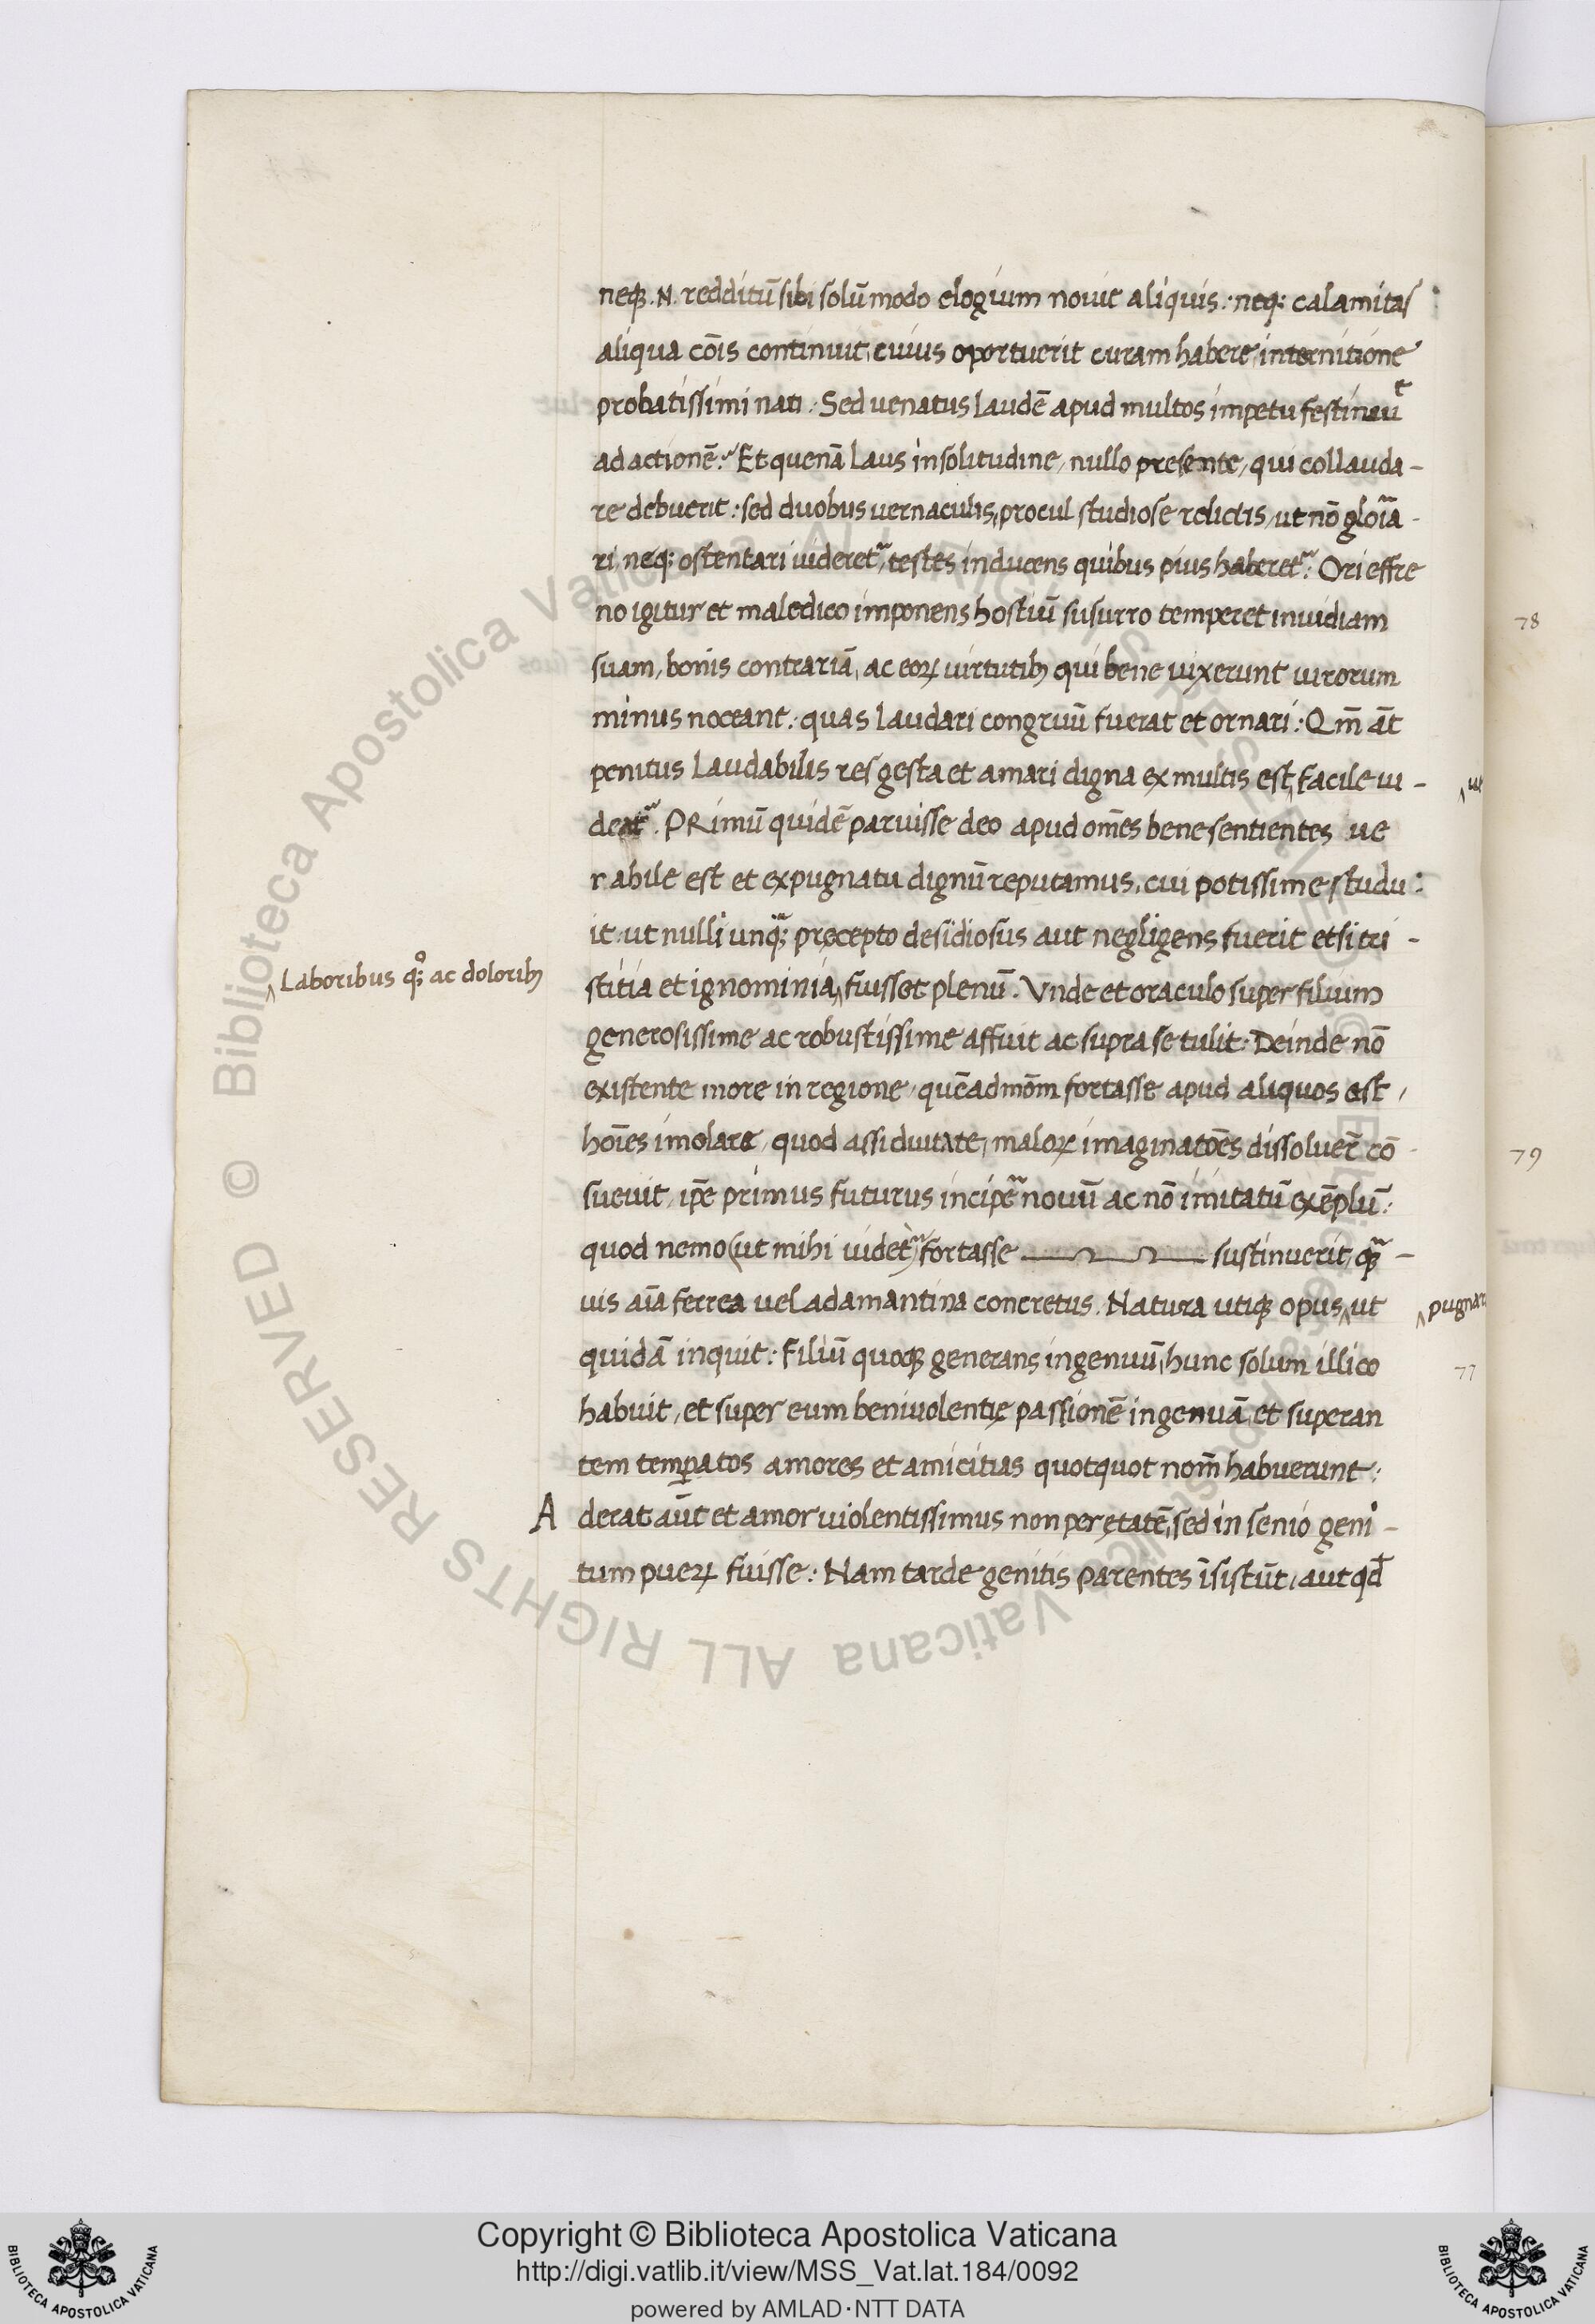 neq. N. redditū sibi solū modo elogium novit aliquis: neq; calamitas
aliqua cōis continuit, cuius oportuerit curam habere, internitione
probatissimi nati: Sed venatus laudē apud multos impetu festinavit
ad actionē: Et quenā laus in solitudine, nullo presente, qui collauda-
re debuerit: sed duobus vernaculis, procul studiose relictis, ut nō gloīa-
ri neq; ostentari videret, testes inducens quibus pius haberet: Ori effre
no igitur et maledico imponens hostiū susurro temperet invidiam
suam, bonis contrariā, ac eoꝝ virtutib qui bene vixerunt virorum
minus noceant: quas laudari congruū fuerat et ornari: Qm̄ āt
penitus laudabilis res gesta et amari digna ex multis est, facile vi-
deat. PRimū quidē paruisse deo apud om̄es bene sentientes ve
rabile est et expugnatu dignū reputamus, cui potissime studu:
it: ut nulli unq; precepto desidiosus aut negligens fuerit etsi tri-
Laboribus q; ac dolorib
stitia et ignominia, fuisset plenū. Vnde et oraculo super filium
generosissime ac robustissime affuit ac supra se tulit: Deinde nō
existente more in regione, quēadmōm fortasse apud aliquos est,
hoīes imolare, quod assiduitate, maloꝝ imaginatōes dissoluēr cō
suevit, ip̄e primus futurus incipe novū ac nō imitatū exēplū:
quod nemo (ut mihi videt) fortasse sustinuerit, q-
vis aīa ferrea vel adamantina concretus. Natura utiq opus, ut
pugnar
quidā inquit: Filiū quoq generans ingenuū, hunc solum illico
habuit, et super eum benivolentie passionē ingenuā, et superan
tem temperatos amores et amicitias quotquot nom̄ habuerunt:
A derat aūt et amor violentissimus non per etatē, sed in senio geni-
tum pueꝝ fuisse: Nam tarde genitis parentes īsistūt, aut qd
78
79
77
© Biblioteca Apostolica Vaticana ALL RIGHTS RESERVED
Copyright © Biblioteca Apostolica Vaticana
http://digi.vatlib.it/view/MSS_Vat.lat.184/0092
powered by AMLAD·NTT DATA
BIBLIOTECA APOSTOLICA VATICANA
BIBLIOTECA APOSTOLICA VATICANA